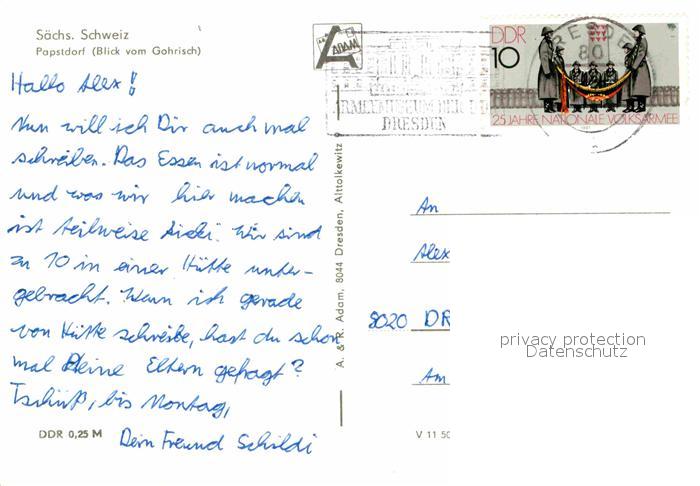 Sächs. Schweiz
Papstdorf (Blick vom Gohrisch)
Hallo Alex!
Nun will ich Dir auch mal
schreiben. Das Essen ist normal
und was wir hier machen
ist teilweise . Wir sind
zu 10 in einer Hütte unter-
gebracht. Wenn ich gerade
von Hütte schreibe, hast du schon
mal Deine Eltern gefragt?
Tschüß, bis Montag,
Dein Freund Schildi
DDR 0,25 M
A. & R. Adam, 8044 Dresden, Alttolkewitz 9
ADAM
DRESDEN
DDR
10
25 JAHRE NATIONALE VOLKSARMEE
DRESDEN
80
An
Alex
8020 DR
Am
V 11 50
privacy protection
Datenschutz